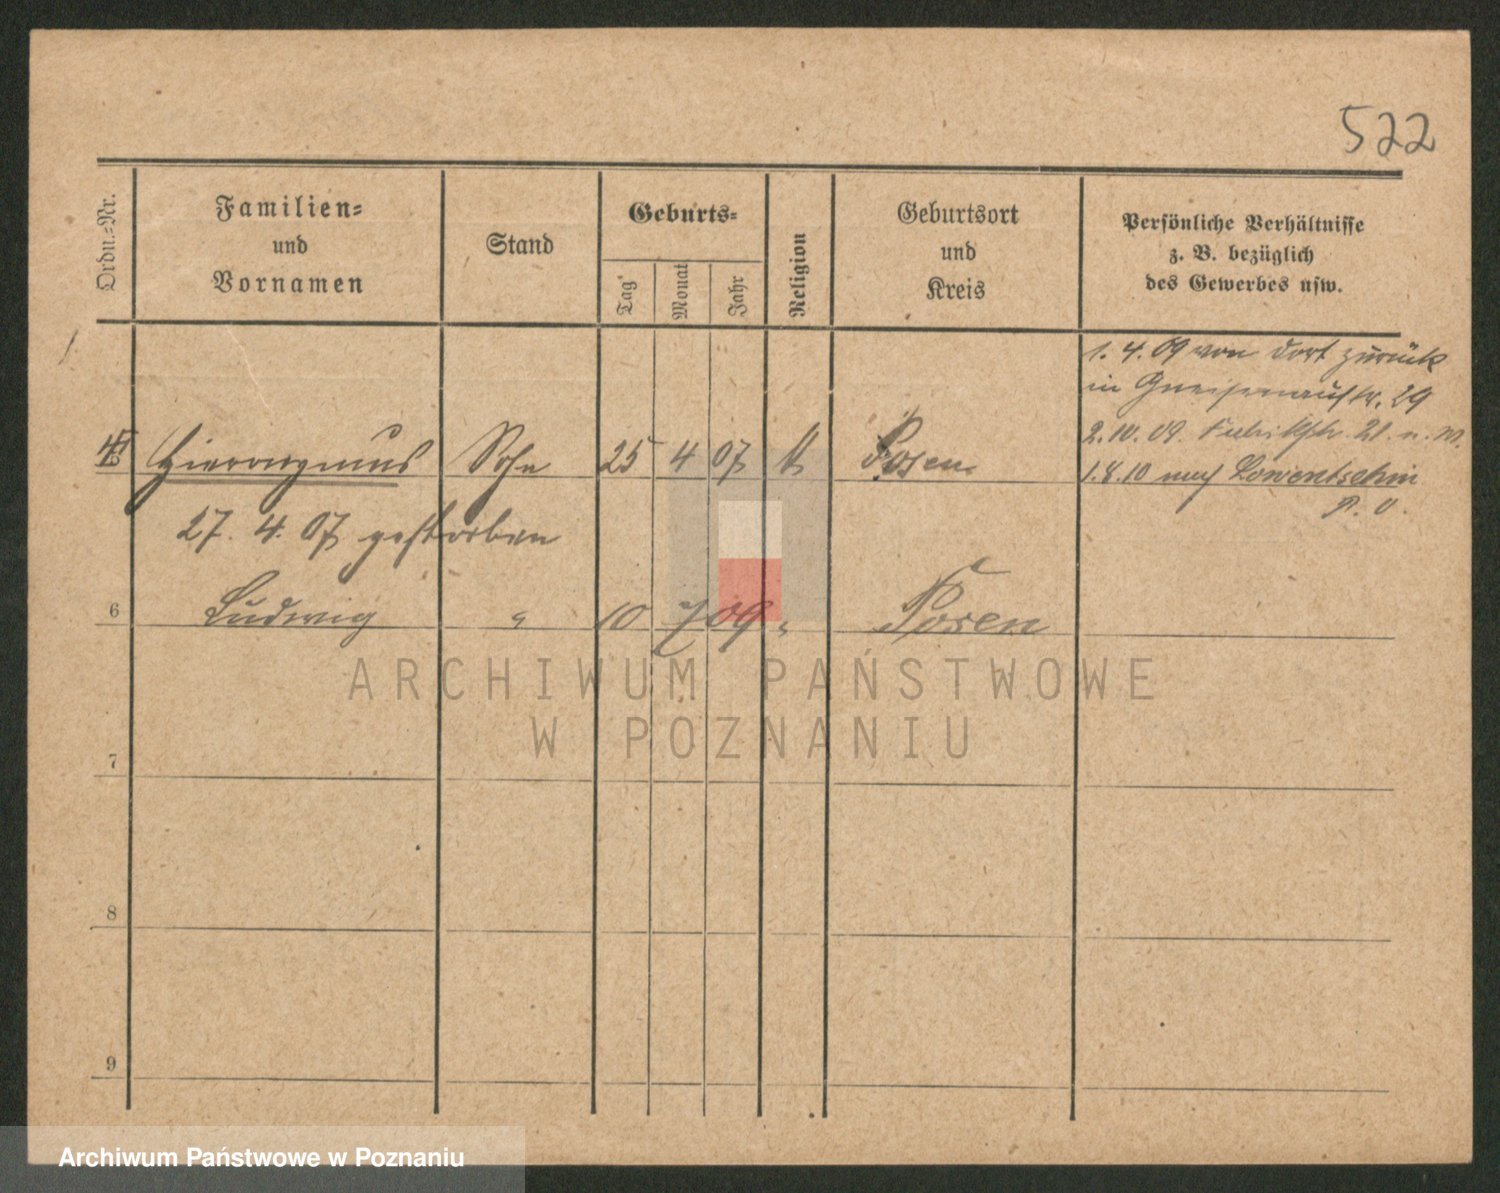 522
Ordn.-Nr.
Familien-
und
Vornamen
Stand
Geburts-
Tag
Monat
Jahr
Religion
Geburtsort
und
Kreis
Persönliche Verhältnisse
z. B. bezüglich
des Gewerbes usw.
1. 4. 09 von dort zurück
in Gneisenaustr. 29
2. 10. 09. 21. n. W.
1. 8. 10 nach Lowentschin
P. O.
Hieronymus Sohn 25 4 07 k Posen
27. 4. 07 gestorben
6 Ludwig " 10 7 09 " Posen
7
8
9
ARCHIWUM PAŃSTWOWE
W POZNANIU
Archiwum Państwowe w Poznaniu